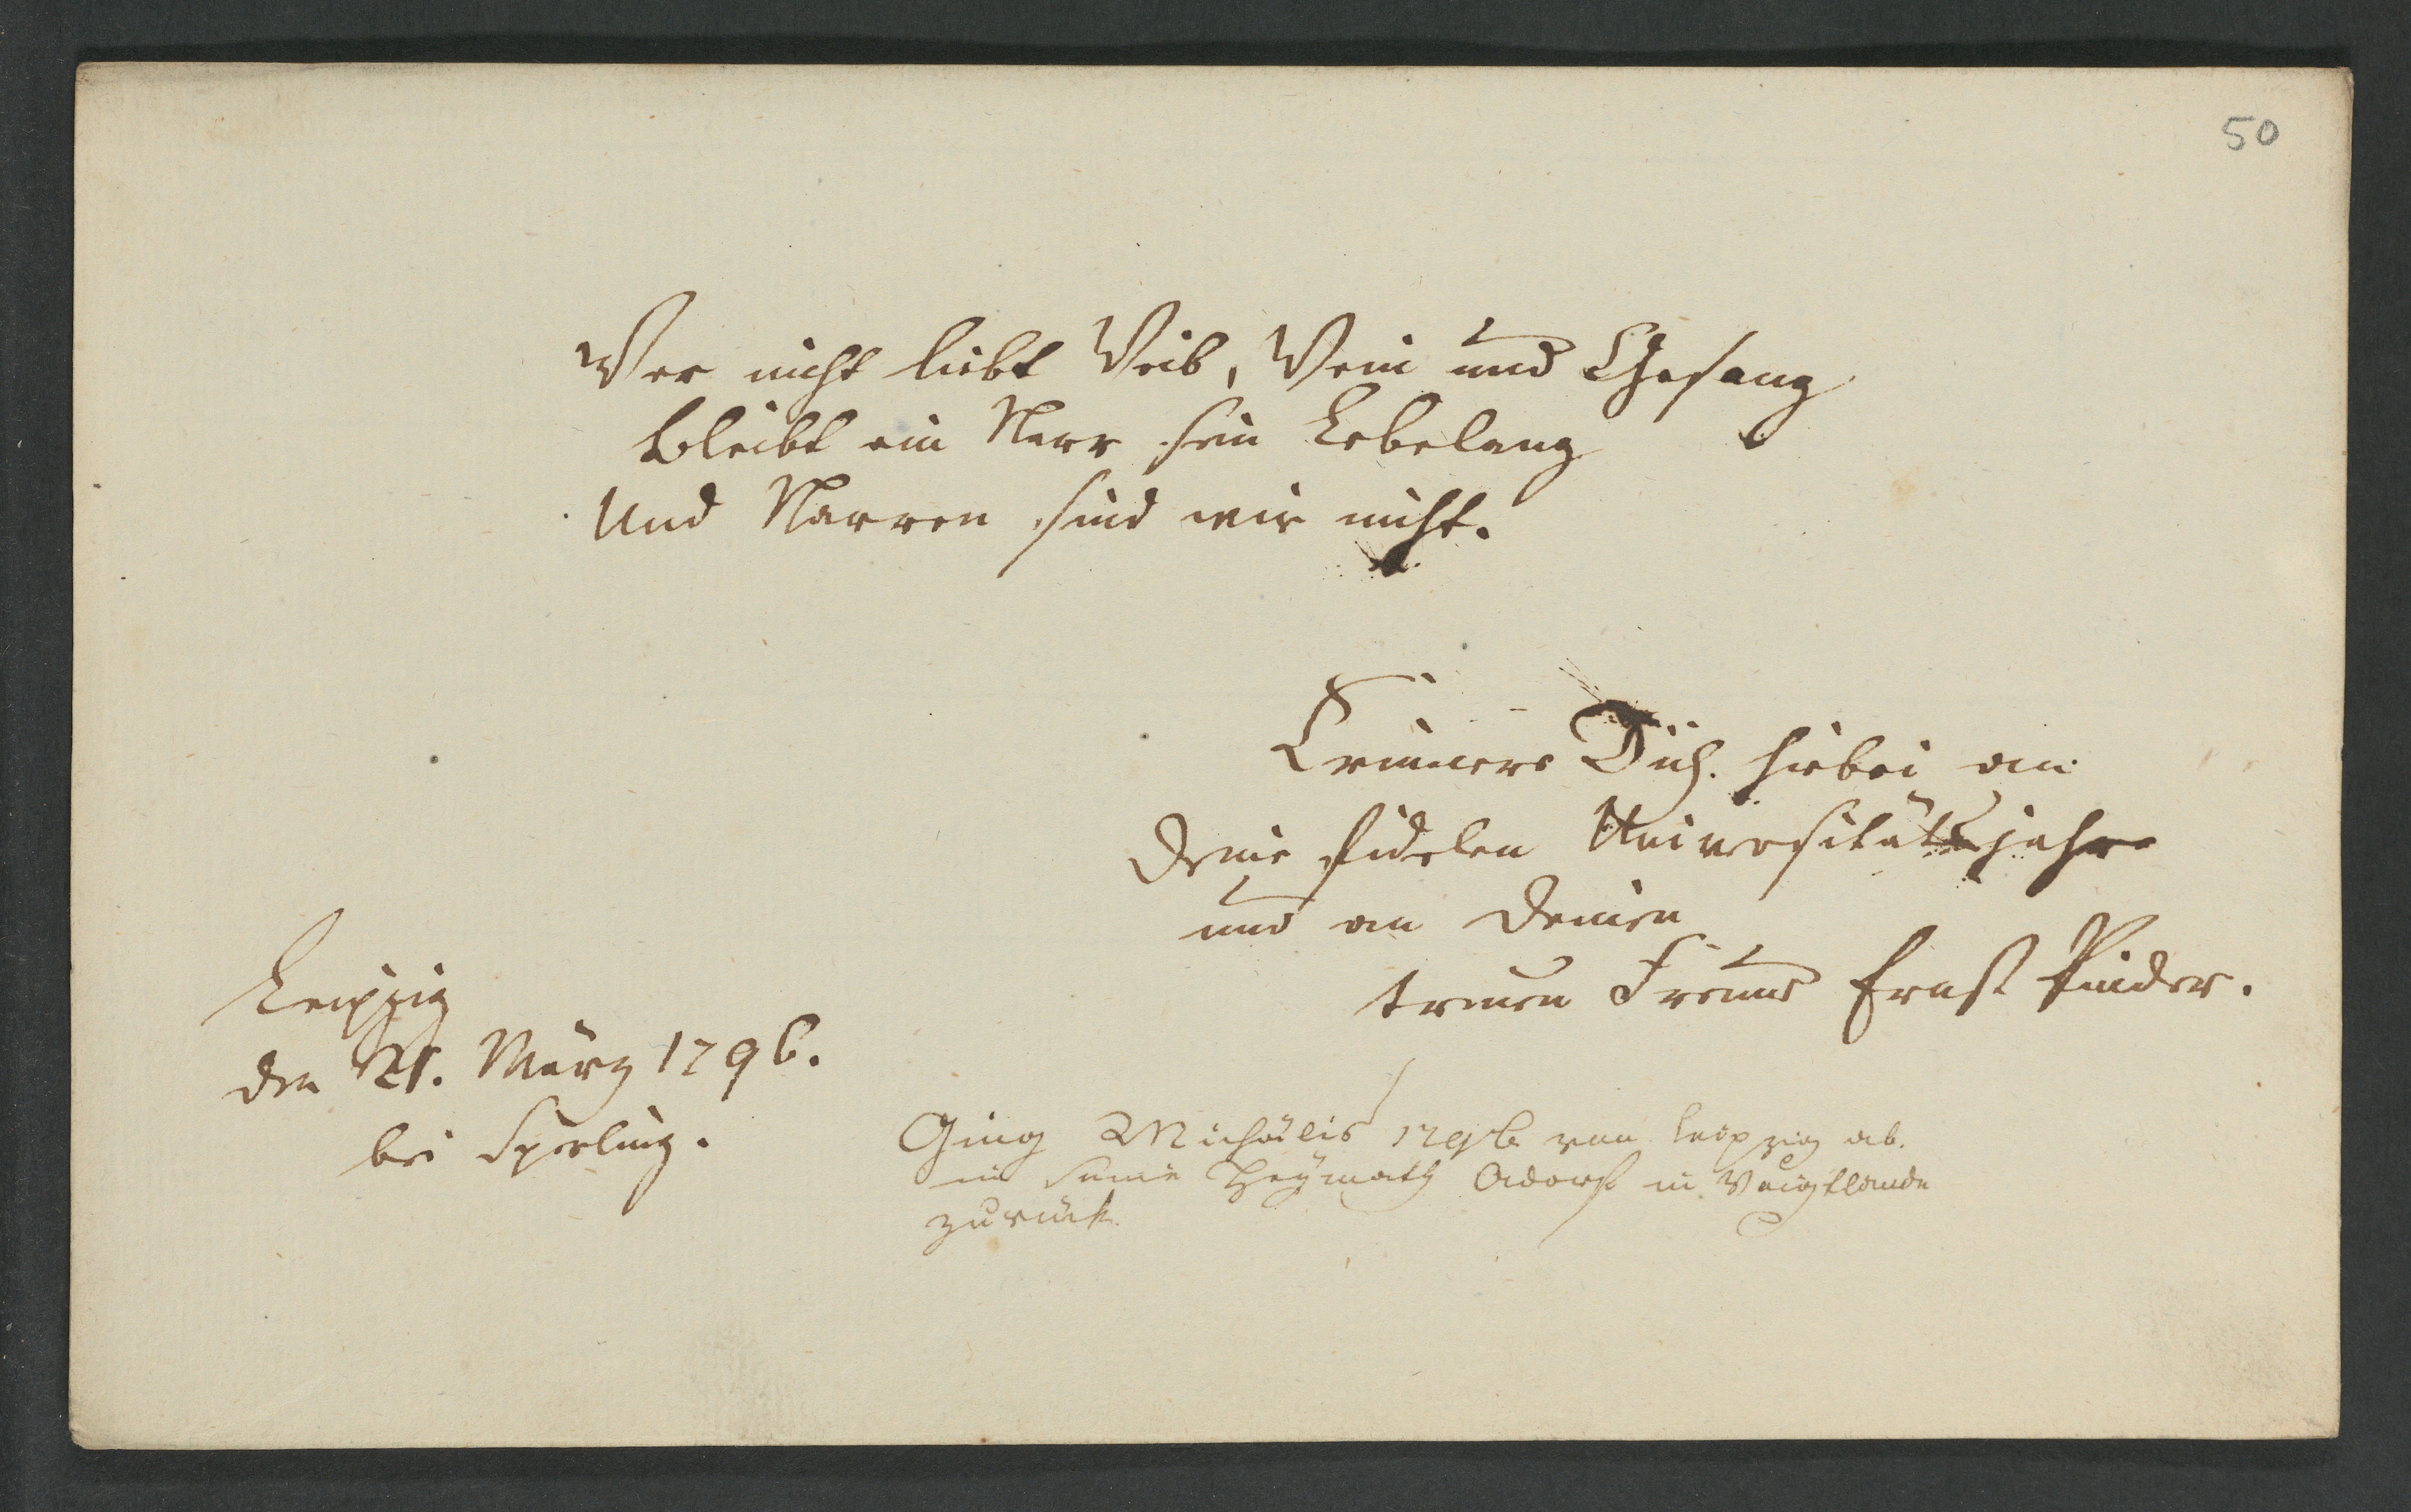 50
Wer nicht liebt Weib, Wein und Gesang
bleibt ein Narr sein Lebelang
Und Narren sind wir nicht.
Erinnere Dich hiebei an
Deine fidelen Universitätsjahre
und an Deinen
treuen Freund Ernst Pinder.
Leipzig
den 21. März 1796.
bei Sperling.
Ging Michaelis 1796 von Leipzig ab.
in seine Heÿmath Adorf in Voigtlande
zurück.